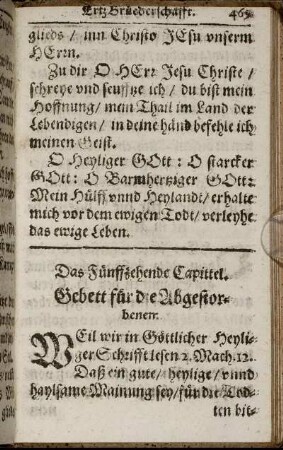 Ertz Bruederschafft. 465
glieds / inn Christo JEsu vnserm
HErrn.
Zu dir O HErr Jesu Christe /
schreye vnd seufftze ich / du bist mein
Hoffnung / mein Thail im Land der
Lebendigen / in deine händ befehle ich
meinen Geist.
O Heyliger GOtt: O starcker
GOtt: O Barmhertziger GOtt:
Mein Hülff vnnd Heylandt / erhalte
mich vor dem ewigen Todt / verleyhe
das ewige Leben.
Das Fünffzehende Capittel.
Gebett für die Abgestor-
benen.
WEil wir in Göttlicher Heyli-
ger Schrifft lesen 2. Mach. 12.
Daß ein gute / heylige / vnnd
haylsame Mainung sey / für die Tod-
ten bit-